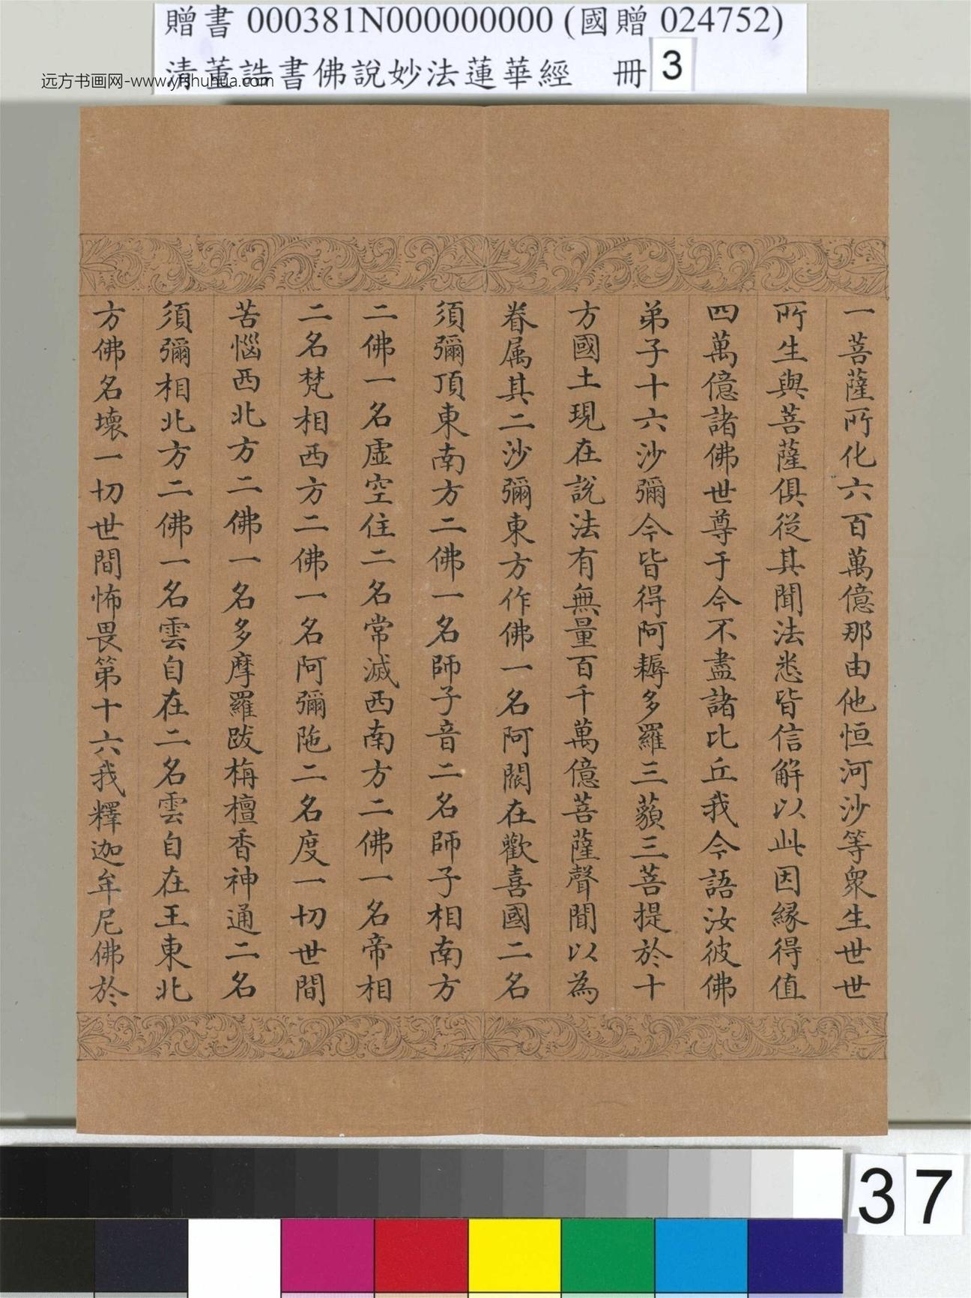 贈書 000381N000000000 (國贈 024752)
清董誥書佛說妙法蓮華經 冊 3
远方书画网-www.yfshuhua.com
一菩薩所化六百萬億那由他恒河沙等眾生世世
所生與菩薩俱從其聞法悉皆信解以此因緣得值
四萬億諸佛世尊于今不盡諸比丘我今語汝彼佛
弟子十六沙彌今皆得阿耨多羅三藐三菩提於十
方國土現在說法有無量百千萬億菩薩聲聞以為
眷属其二沙彌東方作佛一名阿閦在歡喜國二名
須彌頂東南方二佛一名師子音二名師子相南方
二佛一名虛空住二名常滅西南方二佛一名帝相
二名梵相西方二佛一名阿彌陁二名度一切世間
苦惱西北方二佛一名多摩羅跋栴檀香神通二名
須彌相北方二佛一名雲自在二名雲自在王東北
方佛名壞一切世間怖畏第十六我釋迦牟尼佛於
37